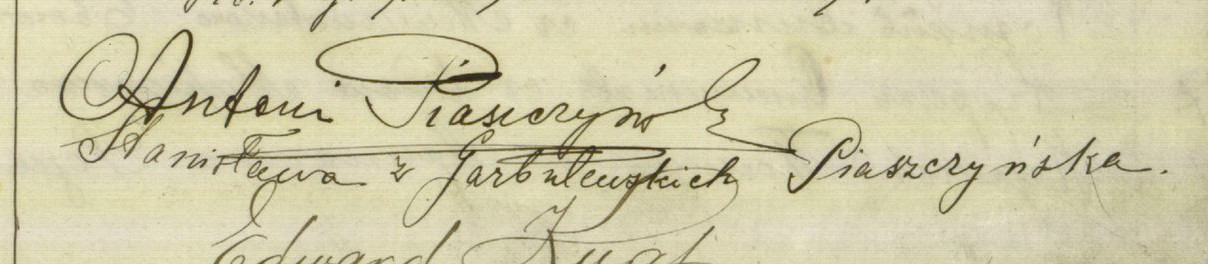 Antoni Piaszczyński
Stanisława z Garbulewskich Piaszczyńska.
Edward